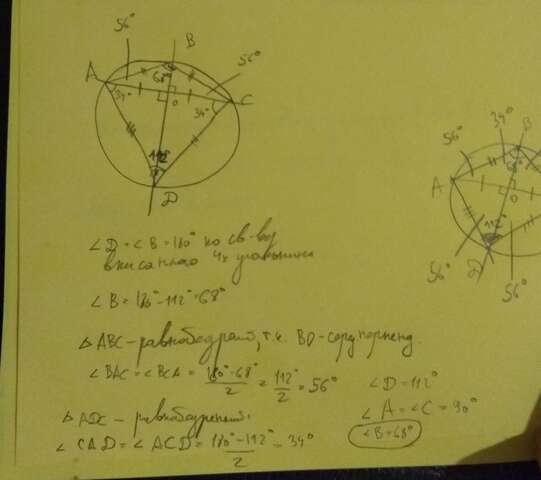 56°
B
56°
A
68°
34°
O
34°
C
112°
D
34°
56°
B
68°
A
O
112°
56°
D
56°
∠D = ∠B = 180° по св-ву
вписанного 4х угольника
∠B = 180° - 112° = 68°
△ABC - равнобедрен, т.к. BD - сер. перпенд.
∠BAC = ∠BCA = (180° - 68°)/2 = 112°/2 = 56°
∠D = 112°
△ADC - равнобедренный
∠A = ∠C = 90°
∠CAD = ∠ACD = (180° - 112°)/2 = 34°
∠B = 68°